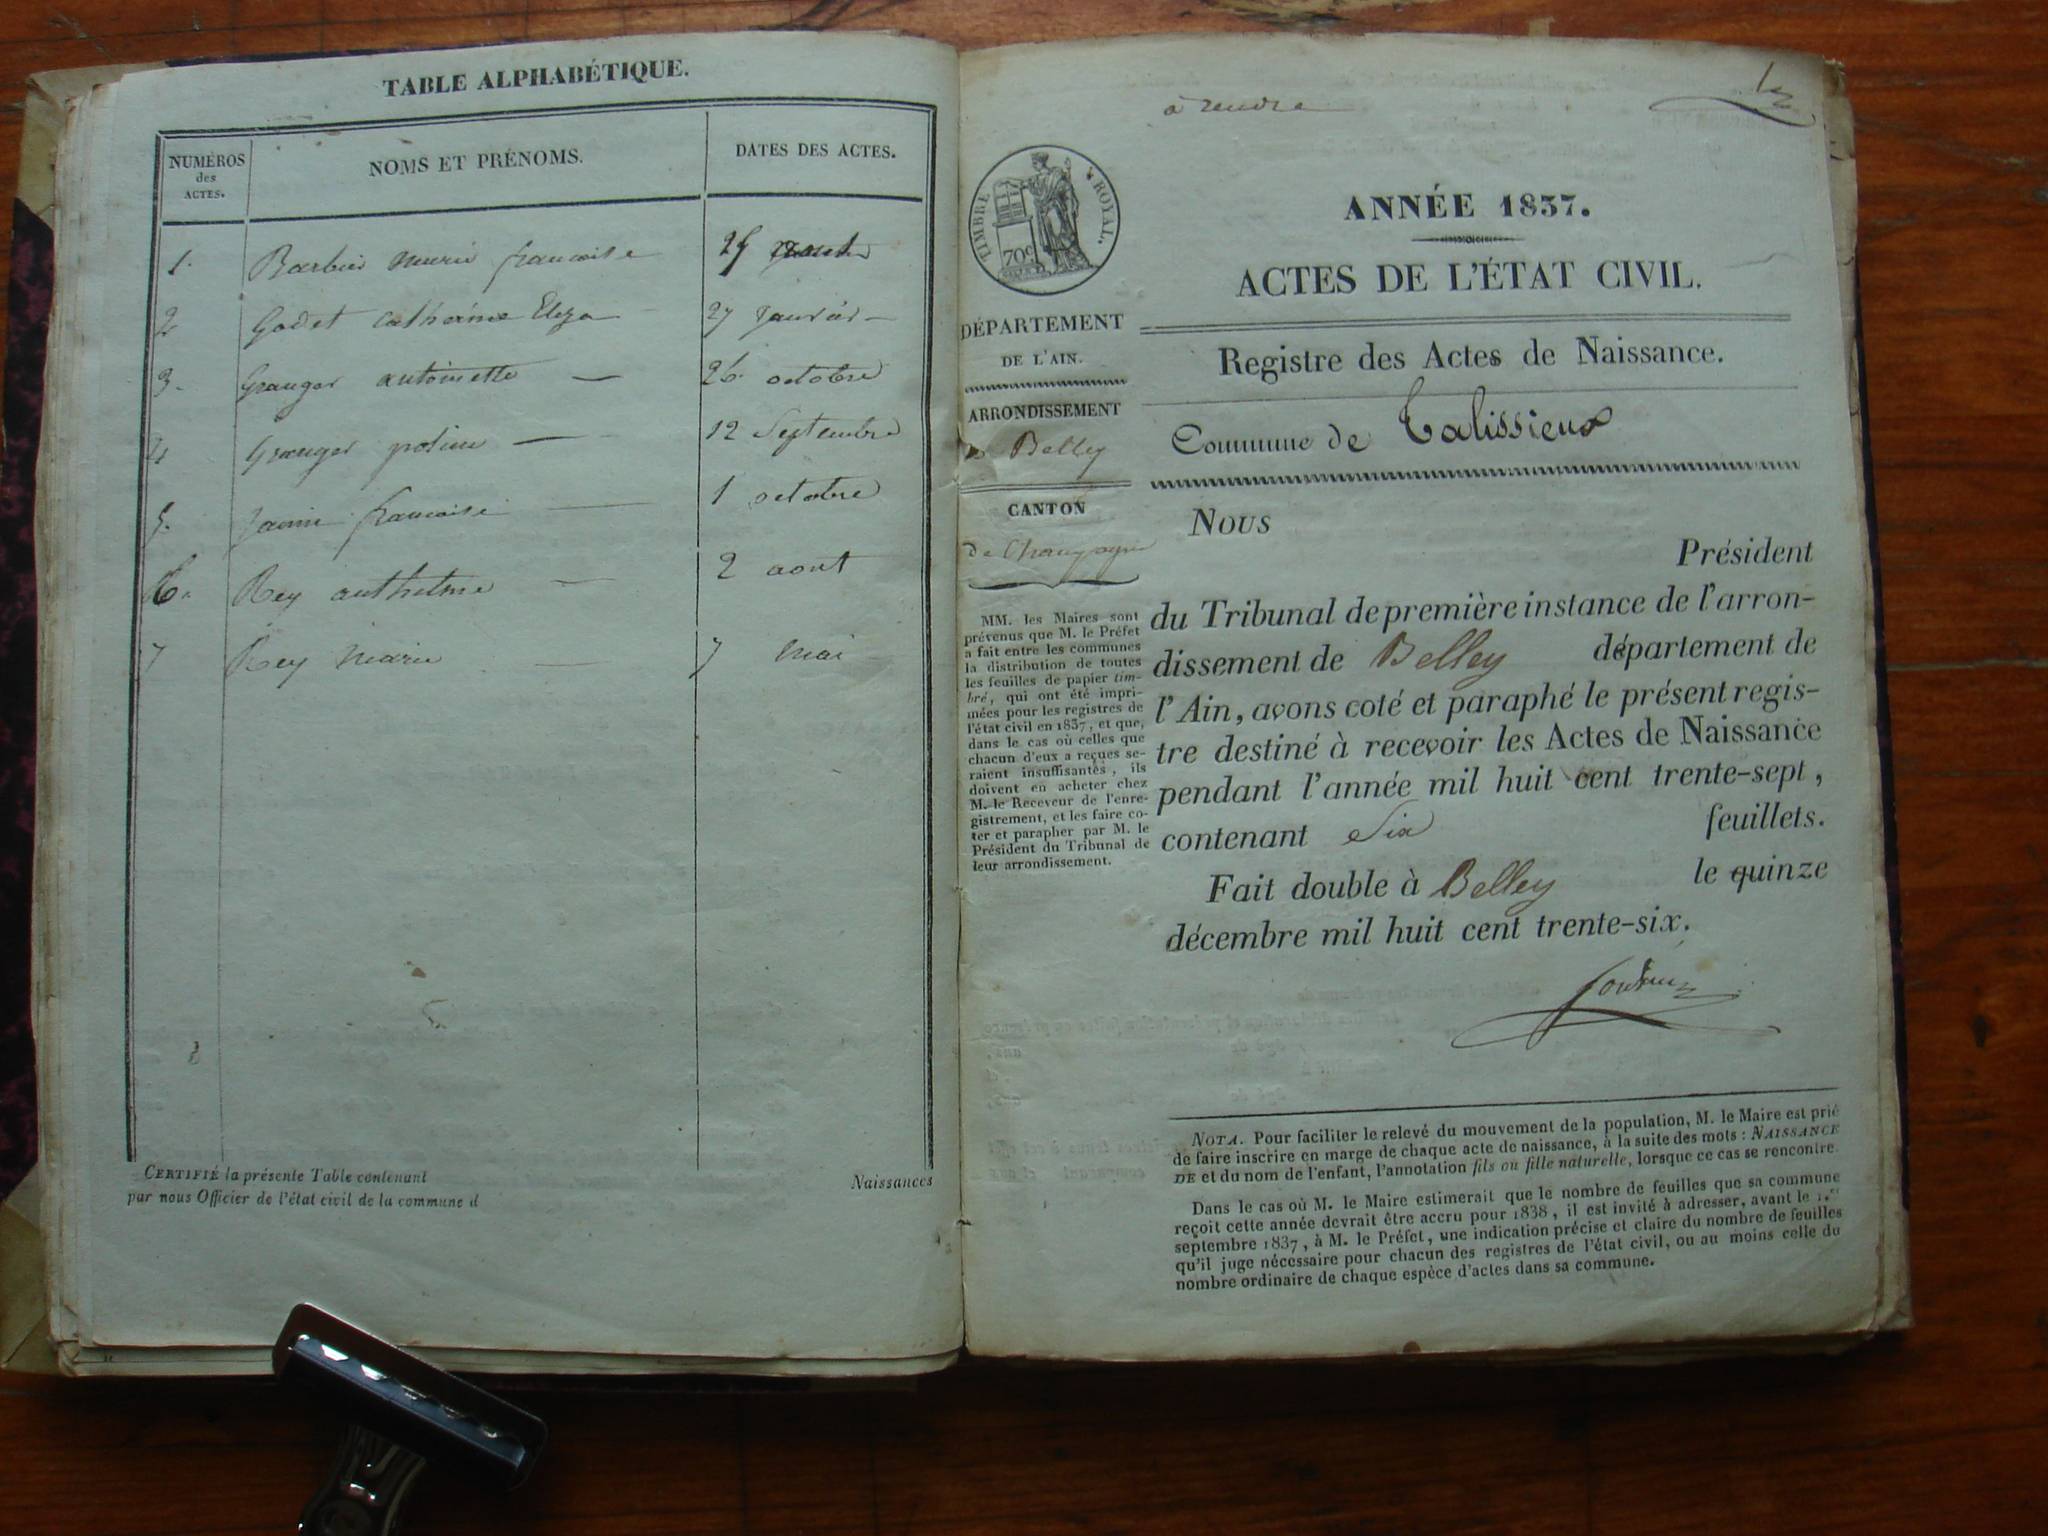 TABLE ALPHABÉTIQUE.
NUMÉROS des ACTES.
NOMS ET PRÉNOMS.
DATES DES ACTES.
1. Barbier marie francoise 25
2 Godet catherine Eliza 27 Janvier
3. Granger antoinette 26 octobre
4 Granger 12 Septembre
5. francoise 1 octobre
6. Rey anthelme 2 aout
7 Rey Marie 7 Mai
CERTIFIÉ la présente Table contenant Naissances
par nous Officier de l'état civil de la commune d
à rendre
TIMBRE ROYAL.
70c
DÉPARTEMENT
DE L'AIN.
ARRONDISSEMENT
Belley
CANTON
de Champagne
MM. les Maires sont
prévenus que M. le Préfet
a fait entre les communes
la distribution de toutes
les feuilles de papier tim-
bré, qui ont été impri-
mées pour les registres de
l'état civil en 1837, et que,
dans le cas où celles que
chacun d'eux a reçues se-
raient insuffisantes, ils
doivent en acheter chez
M. le Receveur de l'enre-
gistrement, et les faire co-
ter et parapher par M. le
Président du Tribunal de
leur arrondissement.
ANNÉE 1837.
ACTES DE L'ÉTAT CIVIL.
Registre des Actes de Naissance.
Commune de Talissieux
NOUS
Président
du Tribunal de première instance de l'arron-
dissement de Belley département de
l'Ain, avons coté et paraphé le présent regis-
tre destiné à recevoir les Actes de Naissance
pendant l'année mil huit cent trente-sept,
contenant Six feuillets.
Fait double à Belley le quinze
décembre mil huit cent trente-six.
NOTA. Pour faciliter le relevé du mouvement de la population, M. le Maire est prié
de faire inscrire en marge de chaque acte de naissance, à la suite des mots : NAISSANCE
DE et du nom de l'enfant, l'annotation fils ou fille naturelle, lorsque ce cas se rencontre.
Dans le cas où M. le Maire estimerait que le nombre de feuilles que sa commune
reçoit cette année devrait être accru pour 1838, il est invité à adresser, avant le 1.er
septembre 1837, à M. le Préfet, une indication précise et claire du nombre de feuilles
qu'il juge nécessaire pour chacun des registres de l'état civil, ou au moins celle du
nombre ordinaire de chaque espèce d'actes dans sa commune.